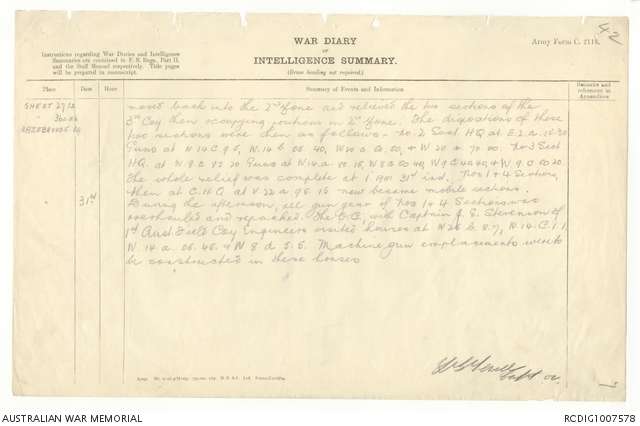 42
WAR DIARY
OR
INTELLIGENCE SUMMARY.
(Erase heading not required.)
Army Form C. 2118.
Instructions regarding War Diaries and Intelligence
Summaries are contained in F. S. Regs., Part II.
and the Staff Manual respectively. Title pages
will be prepared in manuscript.
Place
Date
Hour
Summary of Events and Information
Remarks and
references to
Appendices
SHEET 27 1/2
HAZEBROUCK
31st
move back into the 2nd Zone and relieved the two sections of the
3rd Coy then occupying positions in 2nd Zone. The dispositions of these
two sections were then as follows - No. 2 Sect HQ at
Guns at W 14 C 9 5, W 14 b 05. 40,
No 3 Sect
HQ at Guns at
The whole relief was complete at 1 AM 31st inst. Nos 1 & 4 Sections
then at C.H.Q. at V 22 a 95. 15 now became mobile sections.
During the afternoon, all gun gear of Nos 1 & 4 Sections was
overhauled and repacked. The O.C. with Captain J. S. Stevenson of
1st Aust Field Coy Engineers visited houses at W 26 b. 8.7, W. 14. C. 1. 1
W. 14 a. 05. 45. & W 8 d 5. 5. Machine gun emplacements were to
be constructed in these houses
Capt OC
AUSTRALIAN WAR MEMORIAL
RCDIG1007578